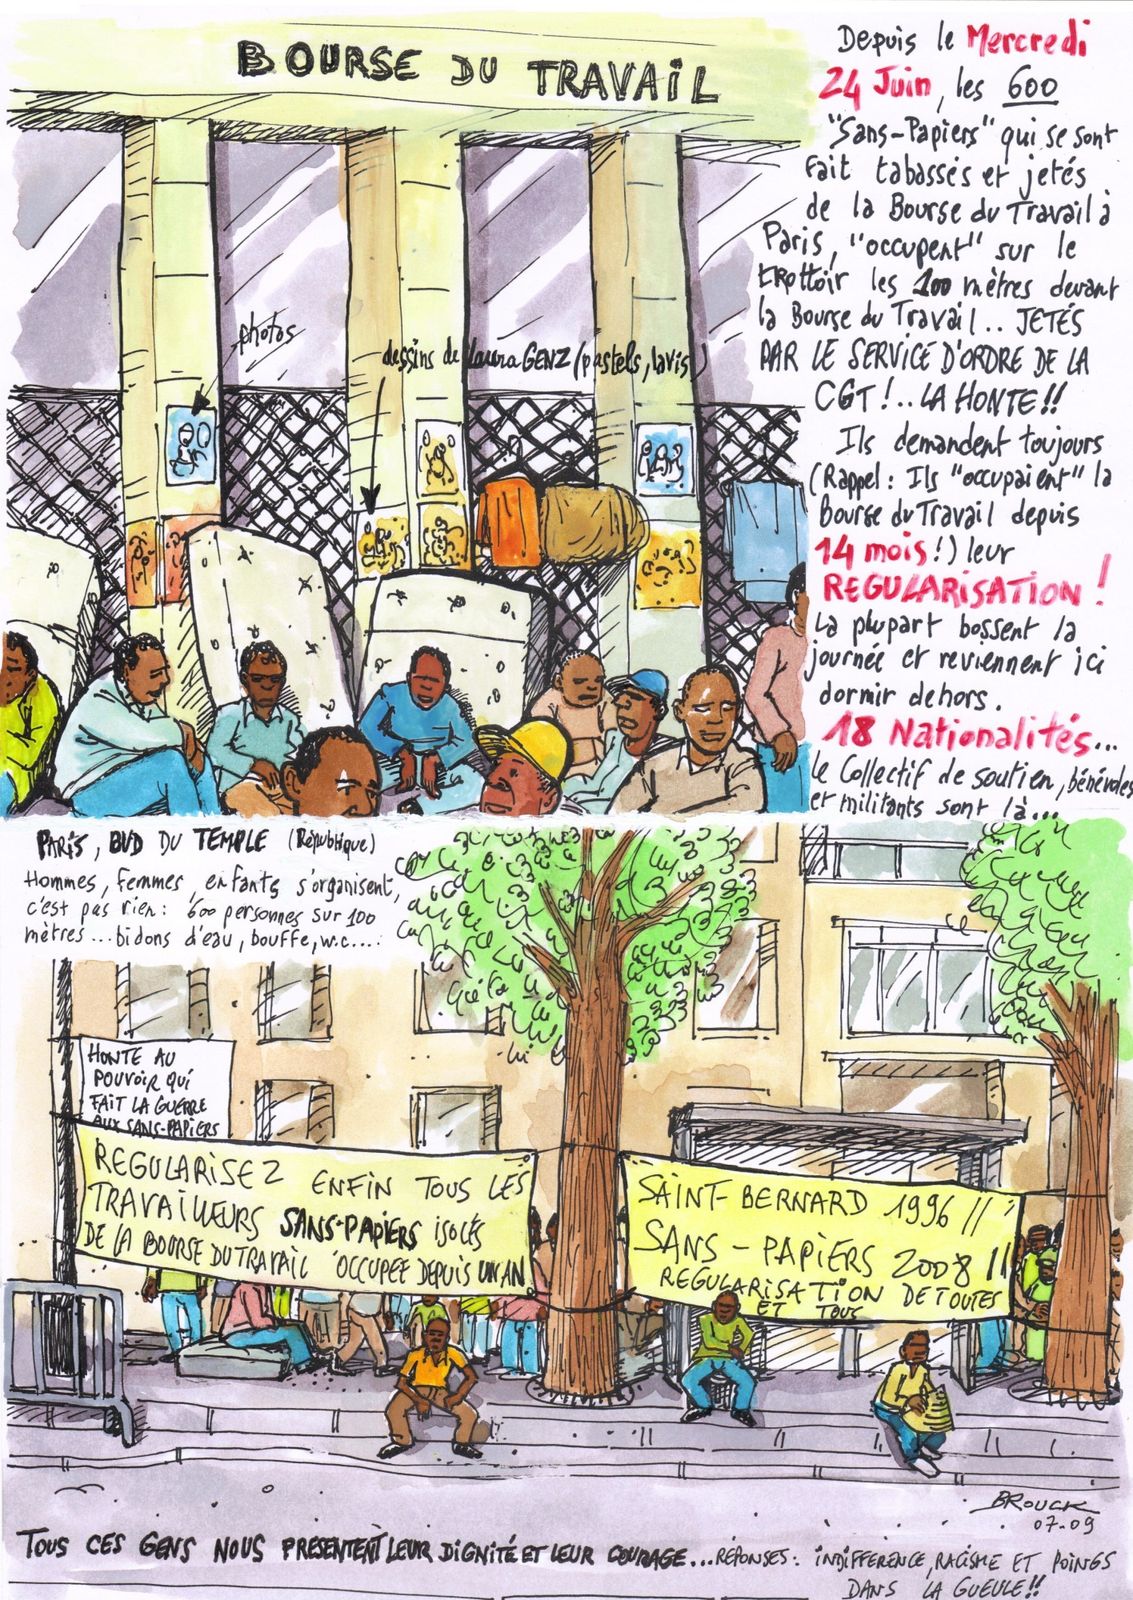 BOURSE DU TRAVAIL
Depuis le Mercredi
24 Juin, les 600
"Sans-Papiers" qui se sont
fait tabassés et jetés
de la Bourse du Travail à
Paris, "occupent" sur le
trottoir les 100 mètres devant
la Bourse du Travail.. JETÉS
PAR LE SERVICE D'ORDRE DE LA
CGT!.. LA HONTE!!
Ils demandent toujours
(Rappel: Ils "occupaient" la
Bourse du Travail depuis
14 mois!) leur
REGULARISATION!
La plupart bossent la
journée et reviennent ici
dormir dehors.
18 Nationalités...
le Collectif de soutien, bénévoles
et militants sont là...
photos
dessins de Laura GENZ (pastels, lavis)
PARIS, BVD DU TEMPLE (République)
Hommes, Femmes, enfants s'organisent,
c'est pas rien: 600 personnes sur 100
mètres... bidons d'eau, bouffe, w.c....
HONTE AU
POUVOIR QUI
FAIT LA GUERRE
AUX SANS-PAPIERS
REGULARISEZ ENFIN TOUS LES
TRAVAILLEURS SANS-PAPIERS ISOLÉS
DE LA BOURSE DU TRAVAIL OCCUPEE DEPUIS UN AN
SAINT-BERNARD 1996 //
SANS-PAPIERS 2008 //
REGULARISATION DE TOUTES
ET TOUS
BROUCK
07-09
TOUS CES GENS NOUS PRÉSENTENT LEUR DIGNITÉ ET LEUR COURAGE...RÉPONSES: INDIFFERENCE, RACISME ET POINGS
DANS LA GUEULE!!